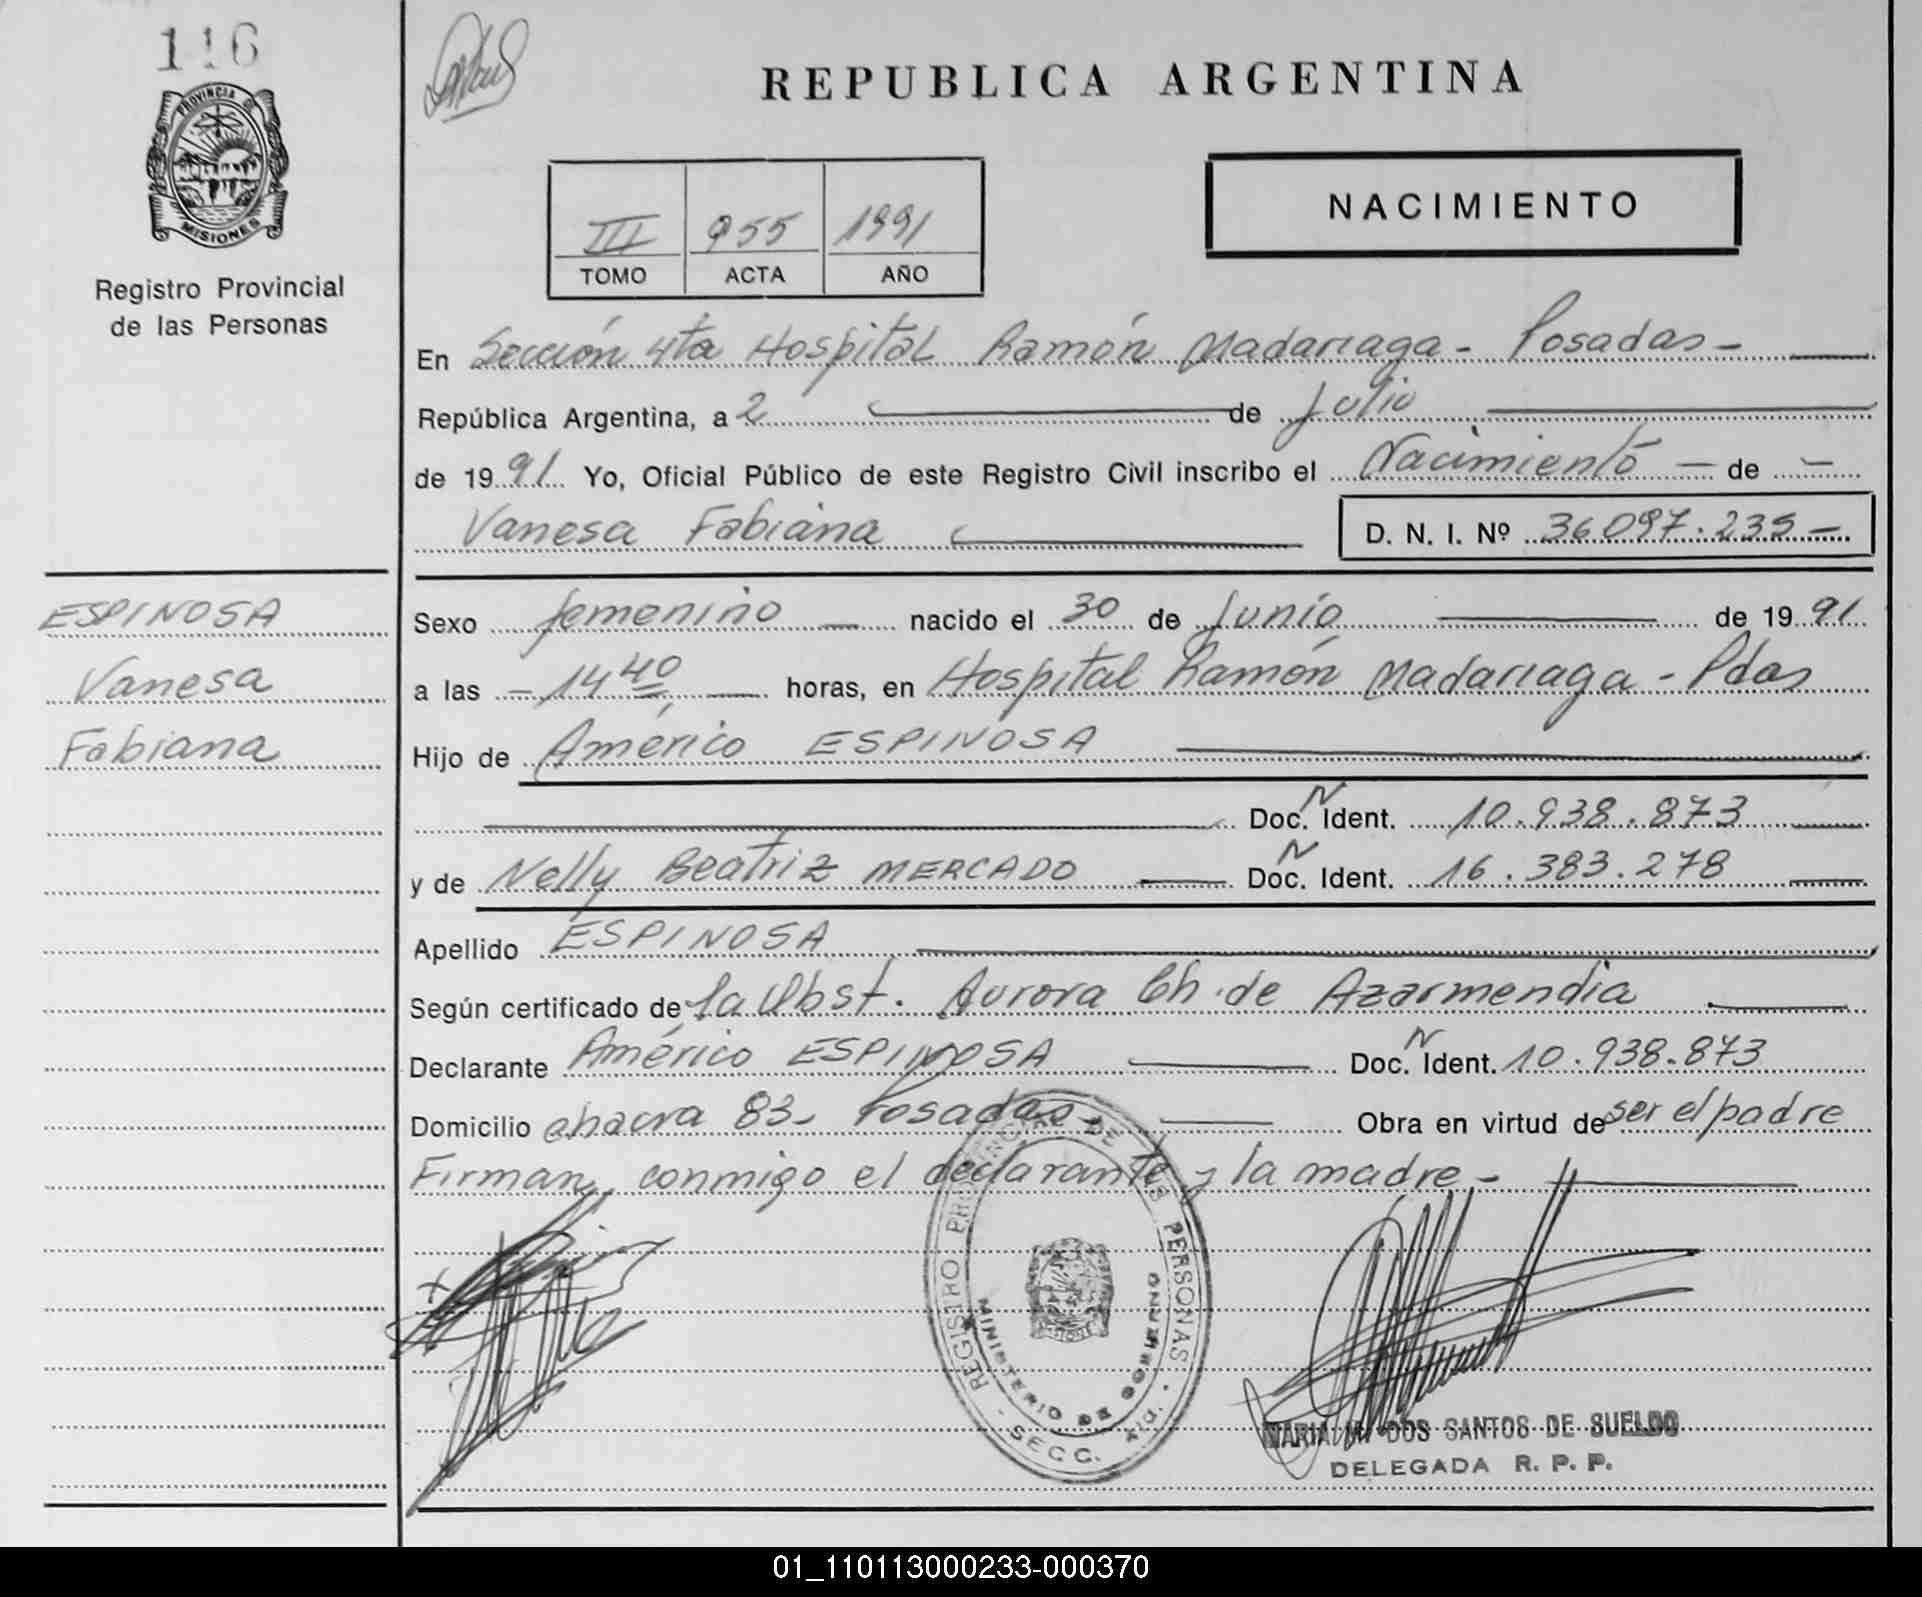 116
PROVINCIA DE
MISIONES
Registro Provincial
de las Personas
REPUBLICA ARGENTINA
NACIMIENTO
III 955 1991
TOMO ACTA AÑO
En Sección 4ta Hospital Ramón Madariaga - Posadas -
República Argentina, a 2 de Julio
de 1991 Yo, Oficial Público de este Registro Civil inscribo el Nacimiento - de -
Vanesa Fabiana D. N. I. Nº 36097.235-
ESPINOSA
Vanesa
Fabiana
Sexo femenino nacido el 30 de Junio de 1991
a las - 14 40 horas, en Hospital Ramón Madariaga - Pdas
Hijo de Américo ESPINOSA
Doc. N Ident. 10.938.873
y de Nelly Beatriz MERCADO Doc. N Ident. 16.383.278
Apellido ESPINOSA
Según certificado de la Obst. Aurora Ch. de Azarmendia
Declarante Américo ESPINOSA Doc. N Ident. 10.938.873
Domicilio chacra 83- Posadas- Obra en virtud de ser el padre
Firman, conmigo el declarante y la madre -
REGISTRO PROVINCIAL DE LAS PERSONAS
MINISTERIO DE GOBIERNO
- SECC. 4ta. -
MARIA M. DOS SANTOS DE SUELDO
DELEGADA R. P. P.
01_110113000233-000370